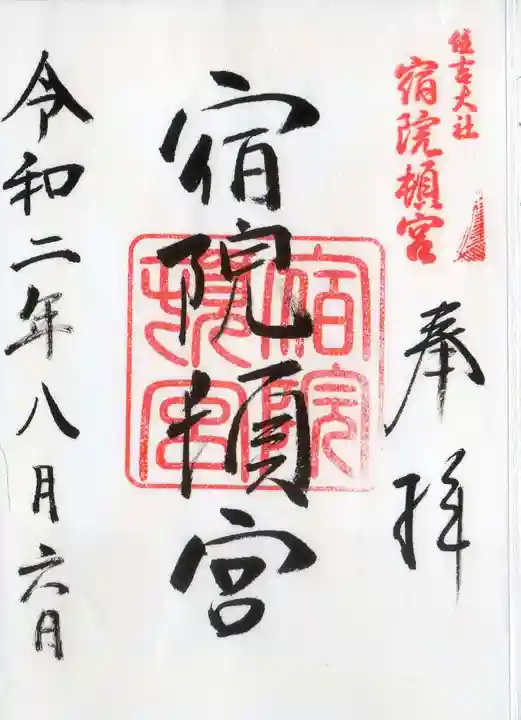 住吉大社
宿院頓宮
奉拝
宿院頓宮
宿院
頓宮
令和二年八月六日